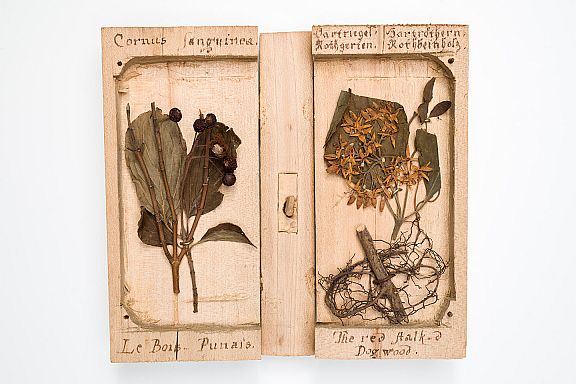 Cornus sanguinea.
Hartriegel.
Rothgerten.
Hartröthern.
Rothbeinholz.
Le Bois Punais.
The red stalk-d
Dogwood.